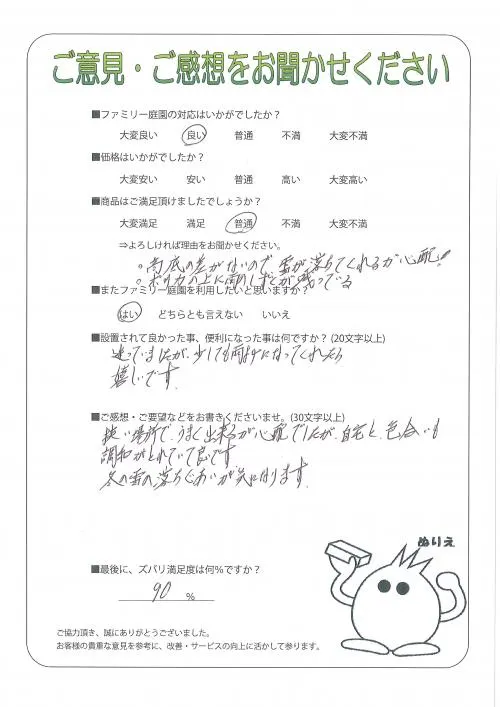 ご意見・ご感想をお聞かせください
■ファミリー庭園の対応はいかがでしたか？
大変良い 良い 普通 不満 大変不満
■価格はいかがでしたか？
大変安い 安い 普通 高い 大変高い
■商品はご満足頂けましたでしょうか？
大変満足 満足 普通 不満 大変不満
⇒よろしければ理由をお聞かせください。
。高底の差がないので雪が落ちてくれるか心配!
。ポリカの上に雨のしずくが残っている
■またファミリー庭園を利用したいと思いますか？
はい どちらとも言えない いいえ
■設置されて良かった事、便利になった事は何ですか？(20文字以上)
迷っていましたが、少しでも雨よけになってくれたら
嬉しいです。
■ご感想・ご要望などをお書きくださいませ。(30文字以上)
狭い場所で、うまく出来るか心配でしたが、自宅と、色合いも
調和がとれていて良です
冬の雪の落ちぐあいが気になります。
ぬりえ
■最後に、ズバリ満足度は何％ですか？
90 ％
ご協力頂き、誠にありがとうございました。
お客様の貴重な意見を参考に、改善・サービスの向上に活かして参ります。